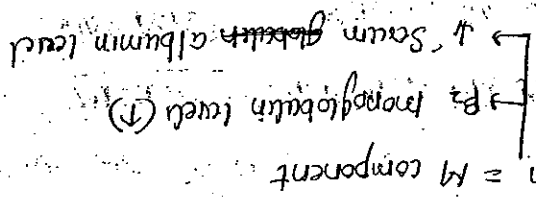 = M component
→ β₂ monoglobulin levels (↑)
→ ↓ Serum globulin albumin level